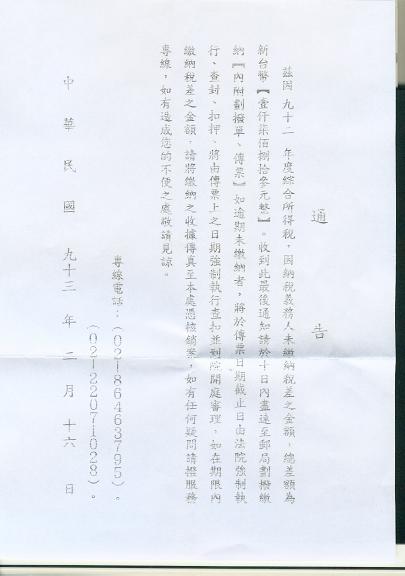 通告
茲因 九十二 年度綜合所得稅，因納稅義務人未繳納稅差之金額，總差額為
新台幣【壹仟柒佰捌拾參元整】。收到此最後通知請於十日內盡速至郵局劃撥繳
納『內附劃撥單、傳票』如逾期未繳納者，將於傳票日期截止日由法院強制執
行、查封、扣押、將由傳票上之日期強制執行查扣並到院開庭審理，如在期限內
繳納稅差之金額，請將繳納之收據傳真至本處憑核銷案，如有任何疑問請撥服務
專線，如有造成您的不便之處敬請見諒。
專線電話：（02-86463795）。
（02-22071028）。
中華民國 九十三 年 二 月 十六 日